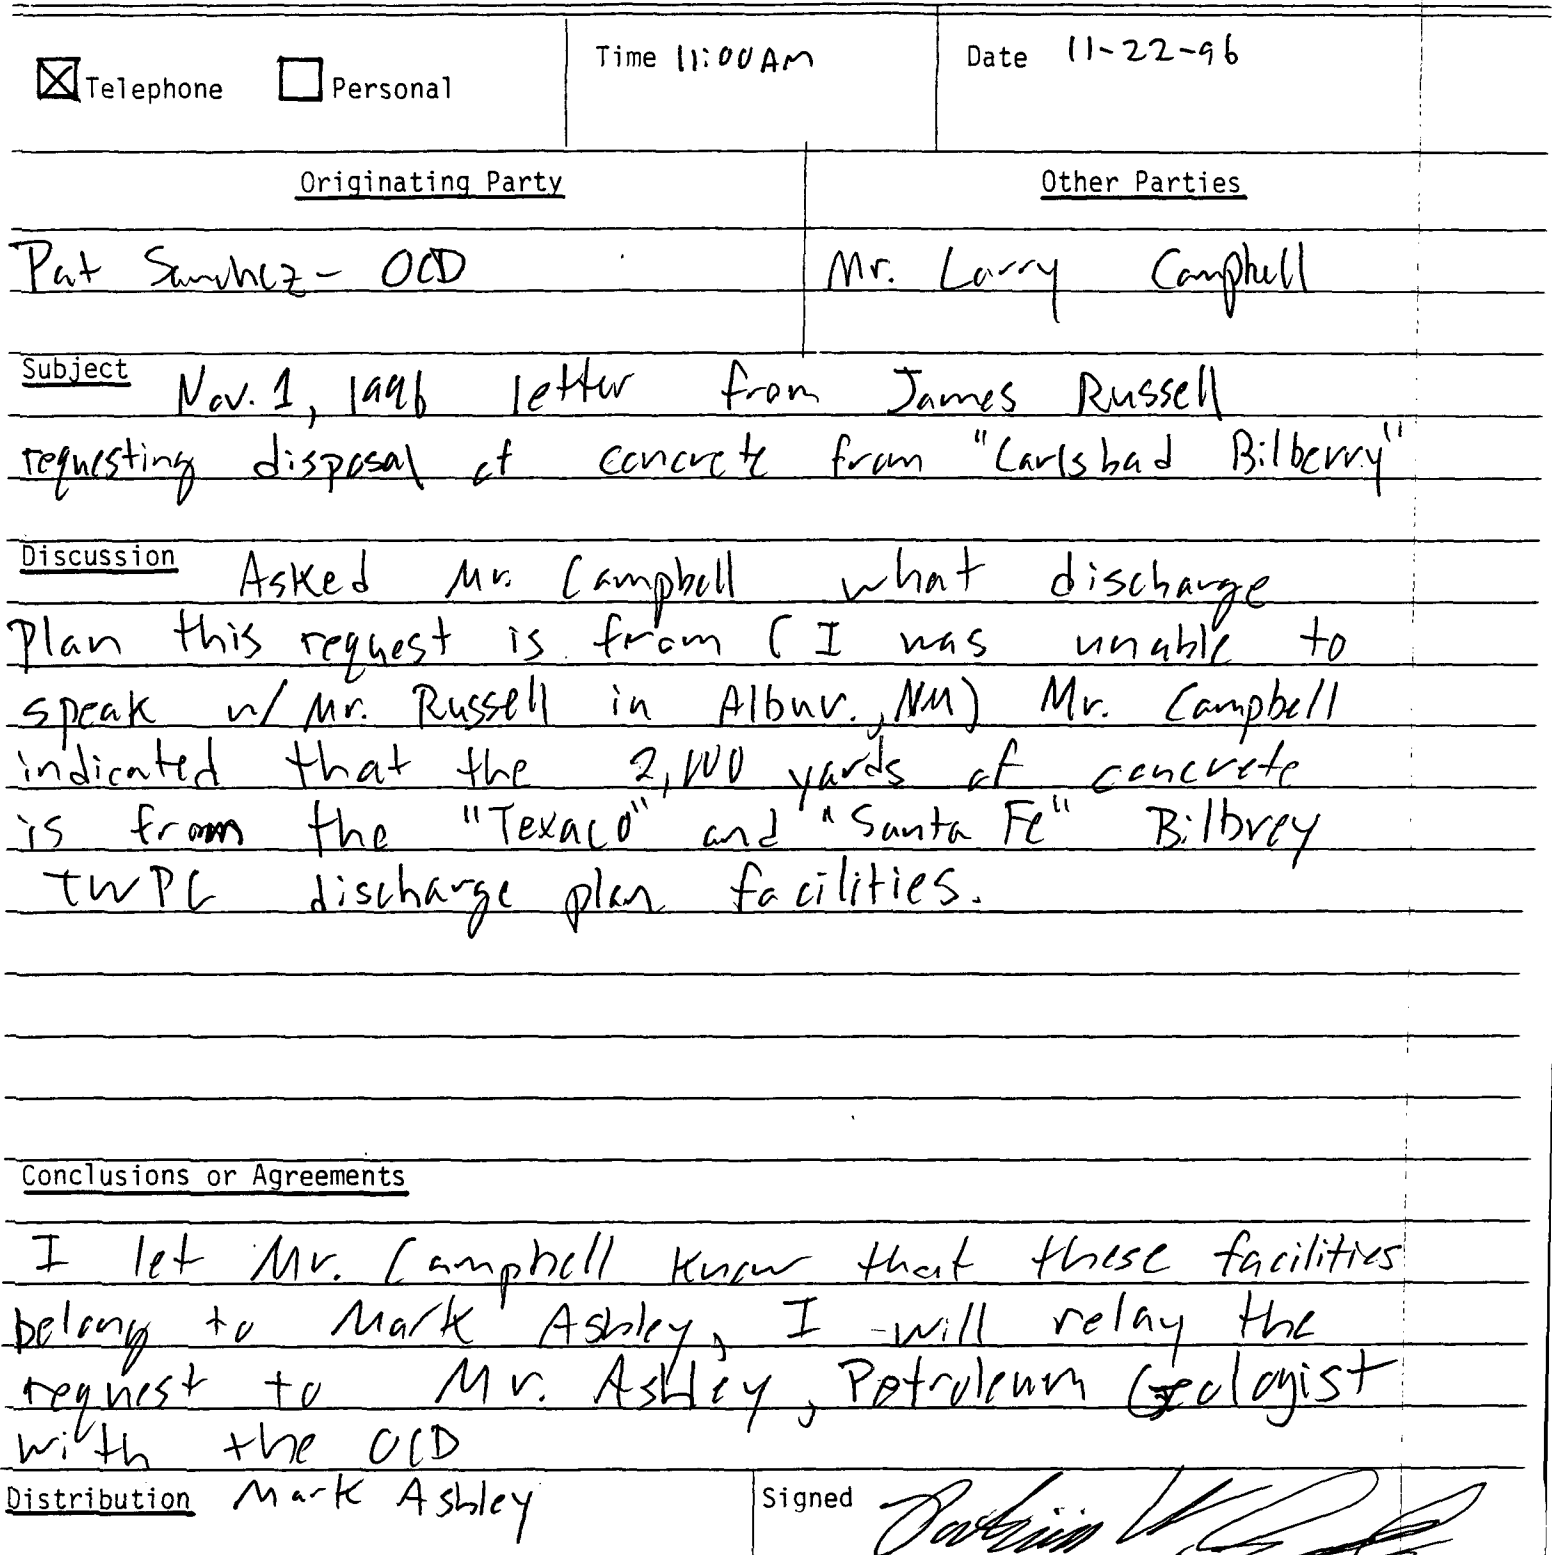 ☒ Telephone ☐ Personal Time 11:00 AM Date 11-22-96
Originating Party Other Parties
Pat Sanchez - OCD Mr. Larry Campbell
Subject Nov. 1, 1996 letter from James Russell
requesting disposal of concrete from "Carlsbad Bilberry"
Discussion Asked Mr. Campbell what discharge
plan this request is from ( I was unable to
speak w/ Mr. Russell in Albuv., NM) Mr. Campbell
indicated that the 2,100 yards of concrete
is from the "Texaco" and "Santa Fe" Bilbrey
TWPC discharge plan facilities.
Conclusions or Agreements
I let Mr. Campbell know that these facilities
belong to Mark Ashley, I will relay the
request to Mr. Ashley, Petroleum Geologist
with the OCD
Distribution Mark Ashley Signed